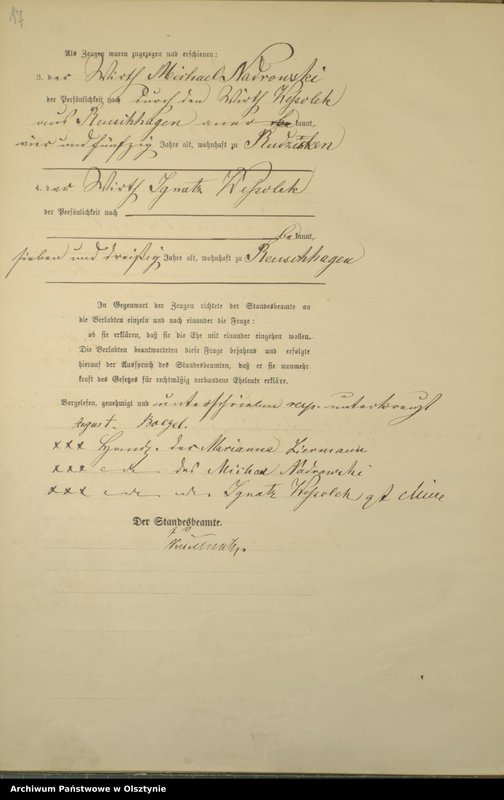 17
Als Zeugen waren zugezogen und erschienen:
3. der Wirth Michael Nadrowski
der Persönlichkeit nach durch den Wirth Wessolek
aus Reuschhagen aner kannt,
vier und fünfzig Jahre alt, wohnhaft zu Rudzisken
4. der Wirth Ignatz Wessolek
der Persönlichkeit nach
be kannt,
sieben und dreißig Jahre alt, wohnhaft zu Reuschhagen
In Gegenwart der Zeugen richtete der Standesbeamte an
die Verlobten einzeln und nach einander die Frage:
ob sie erklären, daß sie die Ehe mit einander eingehen wollen.
Die Verlobten beantworteten diese Frage bejahend und erfolgte
hierauf der Ausspruch des Standesbeamten, daß er sie nunmehr
kraft des Gesetzes für rechtmäßig verbundene Eheleute erkläre.
Vorgelesen, genehmigt und unterschrieben resp. unterkreuzt
August
xxx Handz. der Marianna Ziermann
xxx des Michael Nadrowski
xxx Ignatz Wessolek
Der Standesbeamte.
Archiwum Państwowe w Olsztynie